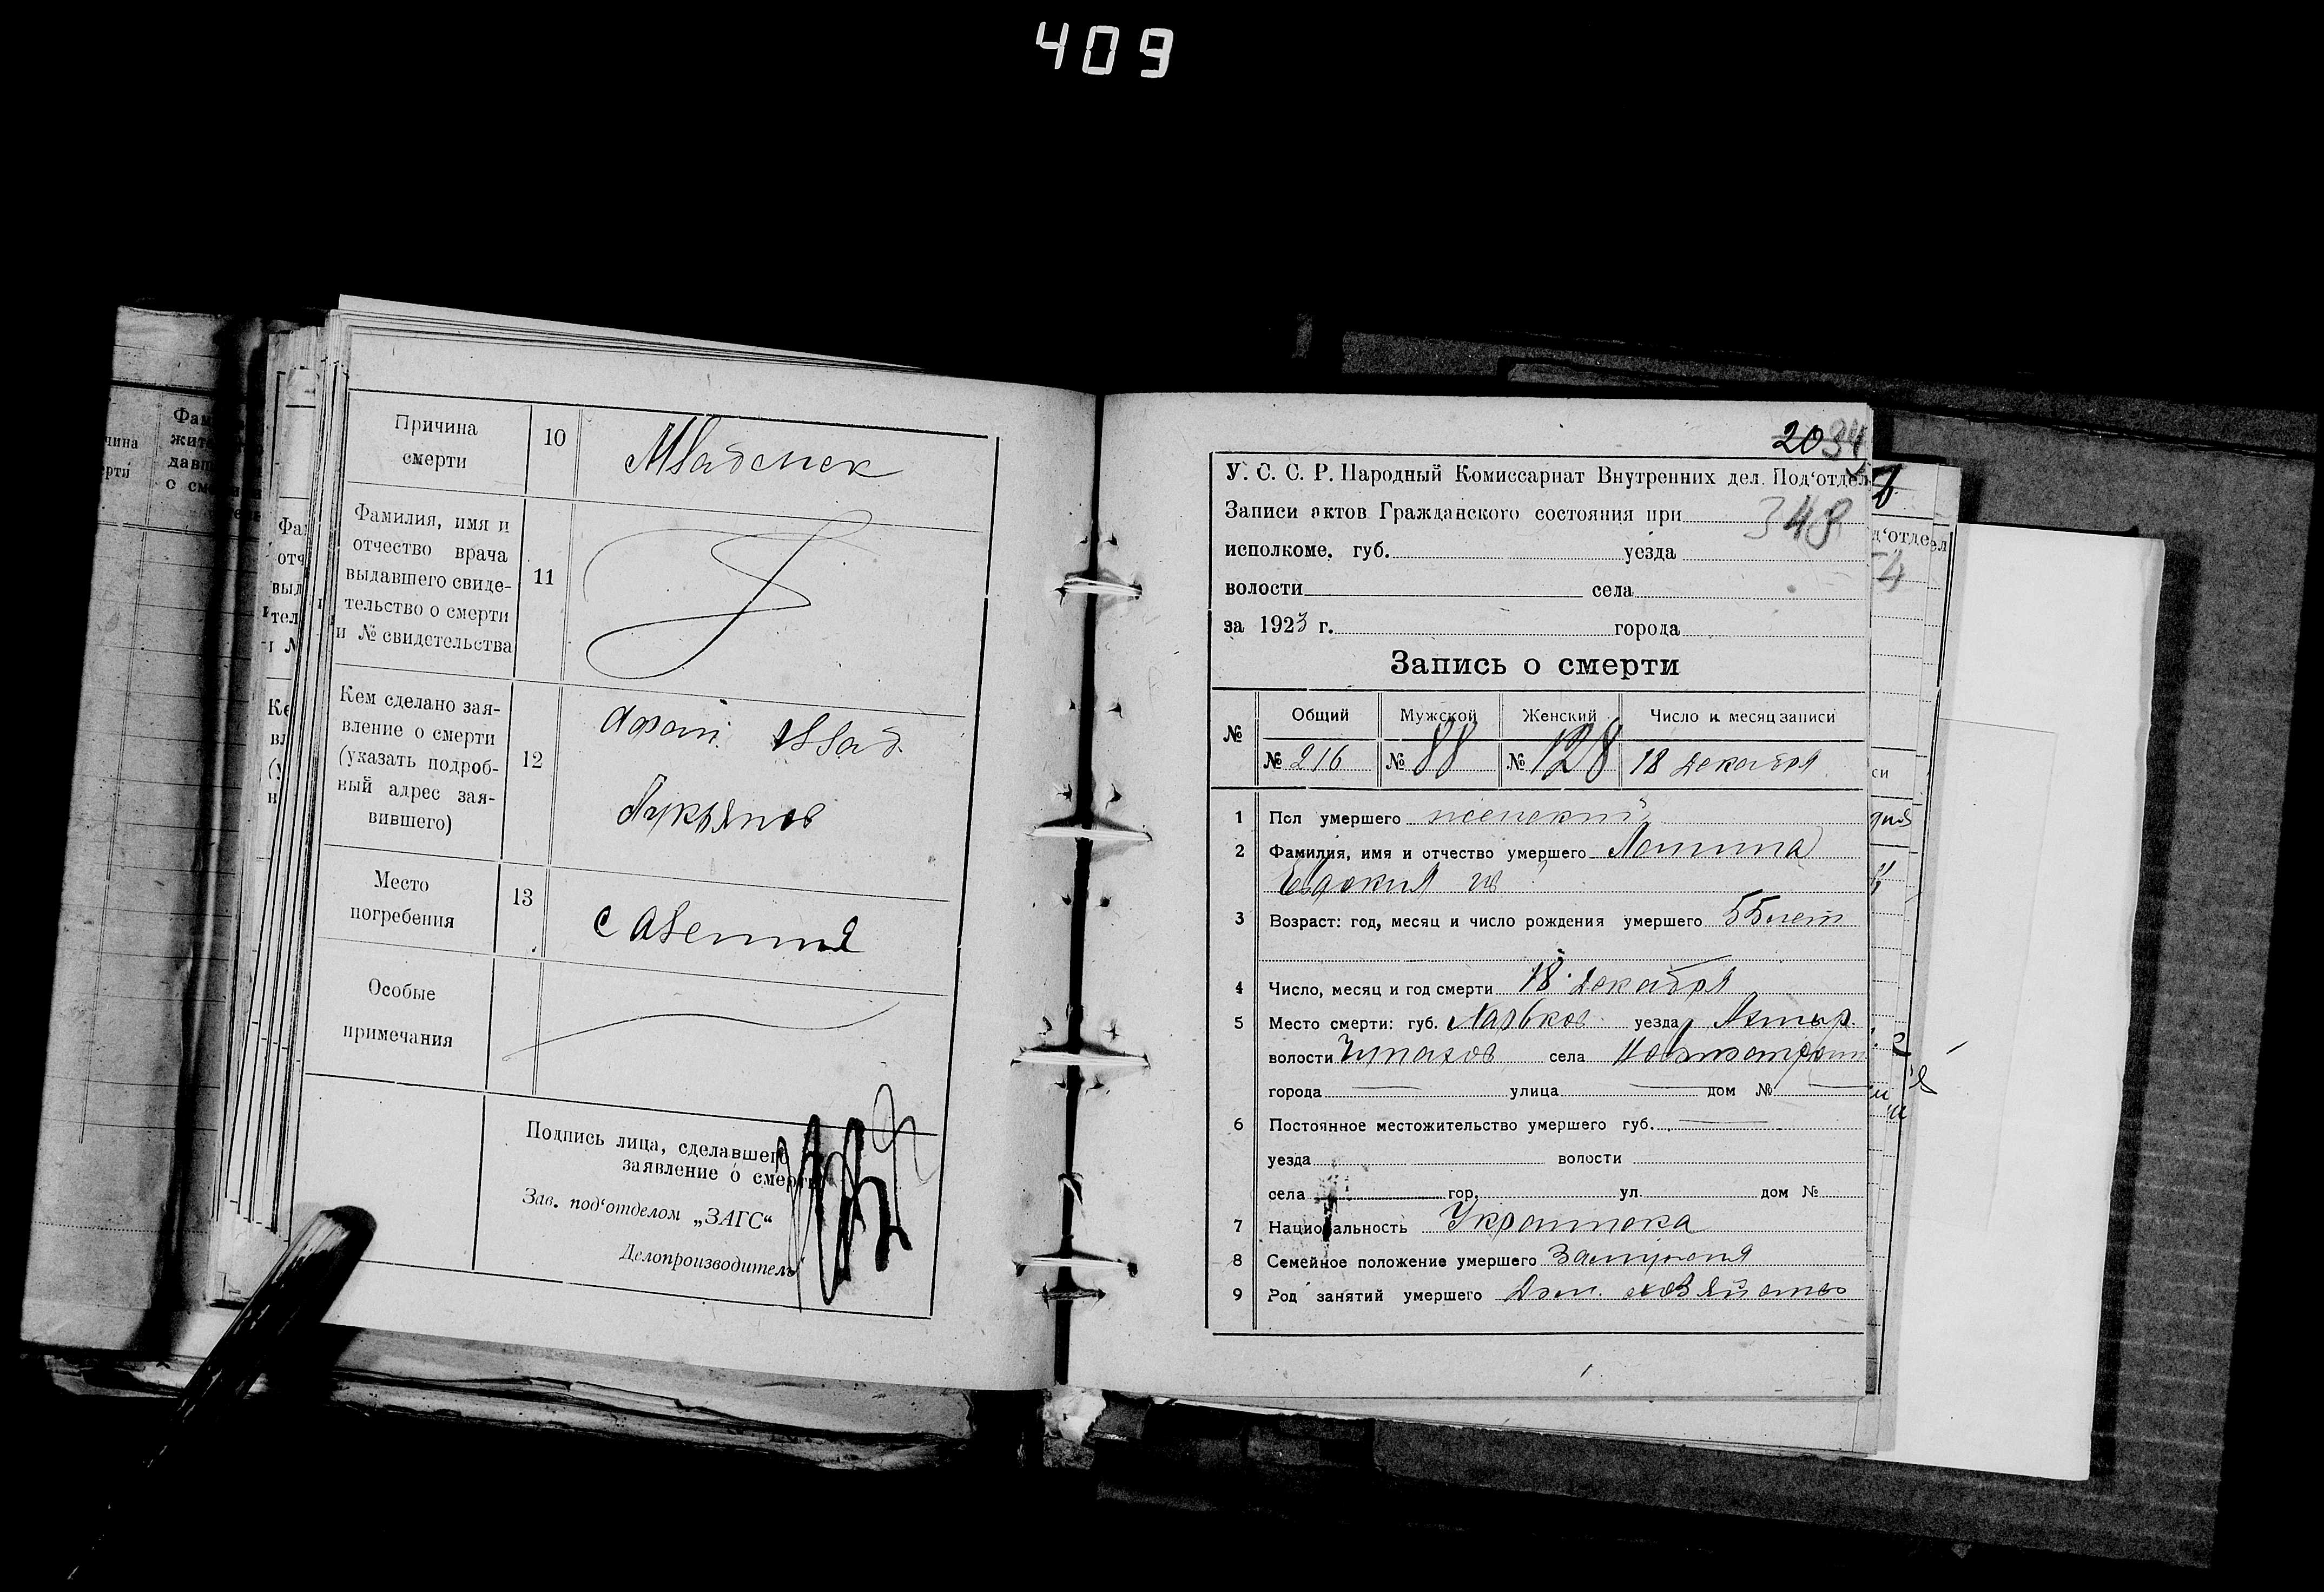 409
Причина
смерти
10
Младенек
Фамилия, имя и
отчество врача
выдавшего свиде-
тельство о смерти
и № свидетельства
11
Кем сделано зая-
вление о смерти
(указать подроб-
ный адрес зая-
вившего)
12
Влад
Лукьянов
Место
погребения
13
с
Особые
примечания
Подпись лица, сделавшего
заявление о смерти
Зав. под‘отделом „ЗАГС“
Делопроизводитель
20 34
У. С. С. Р. Народный Комиссариат Внутренних дел. Под‘отдел
Записи актов Гражданского состояния при 348
исполкоме. губ. уезда
волости села
за 1923 г. города
Запись о смерти
№ Общий Мужской Женский Число и месяц записи
№ 216 № 88 № 128 18 декабря
1 Пол умершего женский
2 Фамилия, имя и отчество умершего
Евдокия
3 Возраст: год, месяц и число рождения умершего 55 лет
4 Число, месяц и год смерти 18 декабря
5 Место смерти: губ. Харьков уезда Ахтыр.
волости Чупахов села
города улица дом №
6 Постоянное местожительство умершего губ.
уезда волости
села гор. ул. дом №
7 Национальность Украинка
8 Семейное положение умершего Замужняя
9 Род занятий умершего Дом. хозяйство